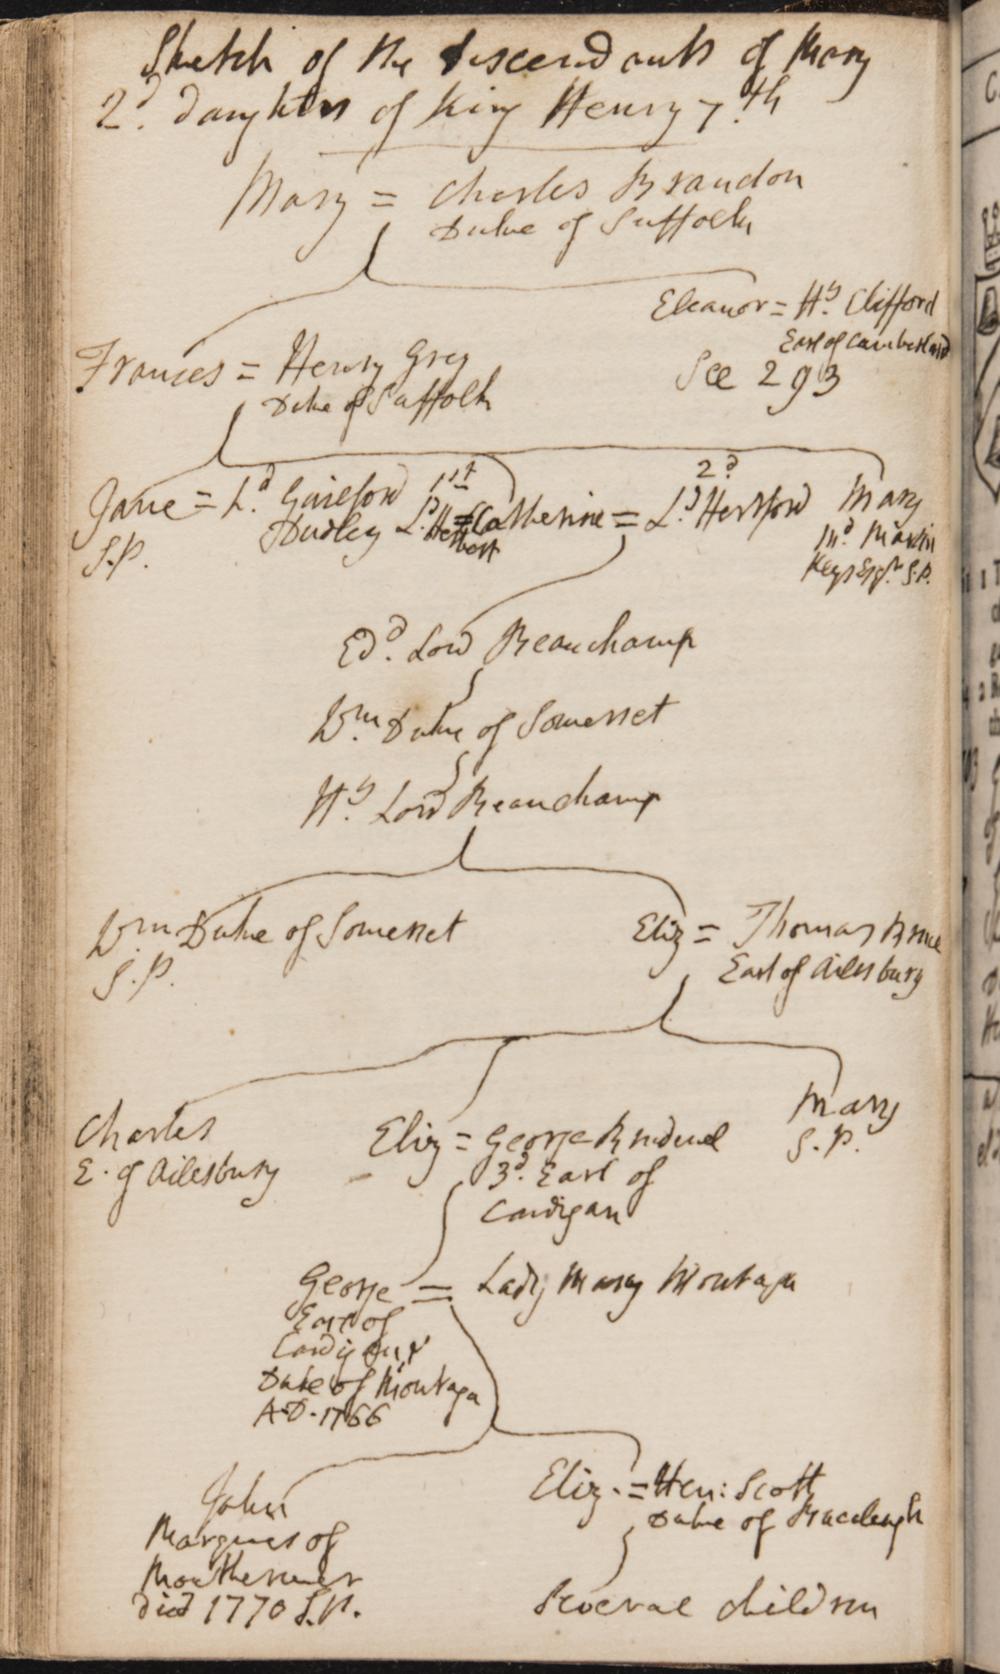 Sketch of the descendants of Mary
2.d daughter of King Henry 7.th
Mary = Charles Brandon
Duke of Suffolk
Eleanor = H.y Clifford
Earl of Cumberland
See 293
Frances = Henry Grey
Duke of Suffolk
Jane = L.d Guilford
Dudley
S.P.
1st
L.d Herbert = Catherine = L.d Hertford
2.d
Mary
m.d Martin
Keys Esq.r S.P.
Ed.d Lord Beauchamp
W.m Duke of Somerset
H.y Lord Beauchamp
W.m Duke of Somerset
S.P.
Eliz = Thomas Bruce
Earl of Ailesbury
Charles
E. of Ailesbury
Eliz = George Brudenel
3.d Earl of
Cardigan
Mary
S.P.
George = Lady Mary Montagu
Earl of
Cardigan &
Duke of Montagu
A.D. 1766
John
Marques of
Monthermer
died 1770 S.P.
Eliz. = Hen: Scott
Duke of Buccleugh
Several children